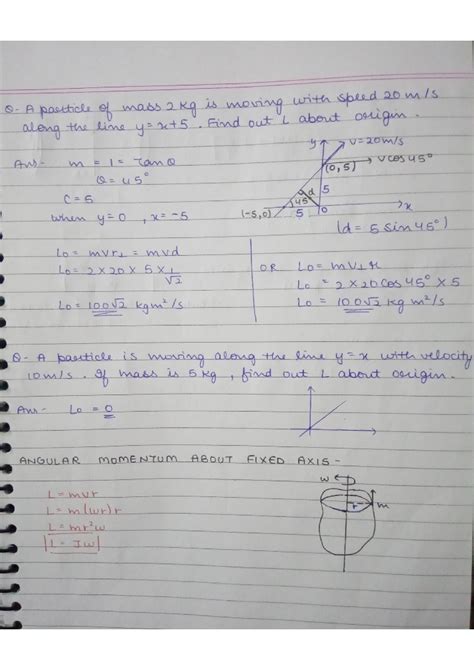 Q- A particle of mass 2 kg is moving with speed 20 m/s
along the line y = x+5. Find out L about origin.
Ans- m = 1 = tanθ
θ = 45°
C = 5
when y = 0, x = -5
y
v = 20m/s
(0,5)
v cos 45°
d
45°
5
(-5,0)
5
0
x
(d = 5 sin 45°)
L₀ = mvr⊥ = mvd
L₀ = 2 × 20 × 5 × 1/√2
L₀ = 100√2 kgm²/s
OR L₀ = mv⊥r
L₀ = 2 × 20 cos 45° × 5
L₀ = 100√2 kg m²/s
Q- A particle is moving along the line y = x with velocity
10 m/s. If mass is 5 kg, find out L about origin.
Ans- L₀ = 0
ANGULAR MOMENTUM ABOUT FIXED AXIS -
L = mvr
L = m(wr)r
L = mr²w
L = Iw
w
r
m